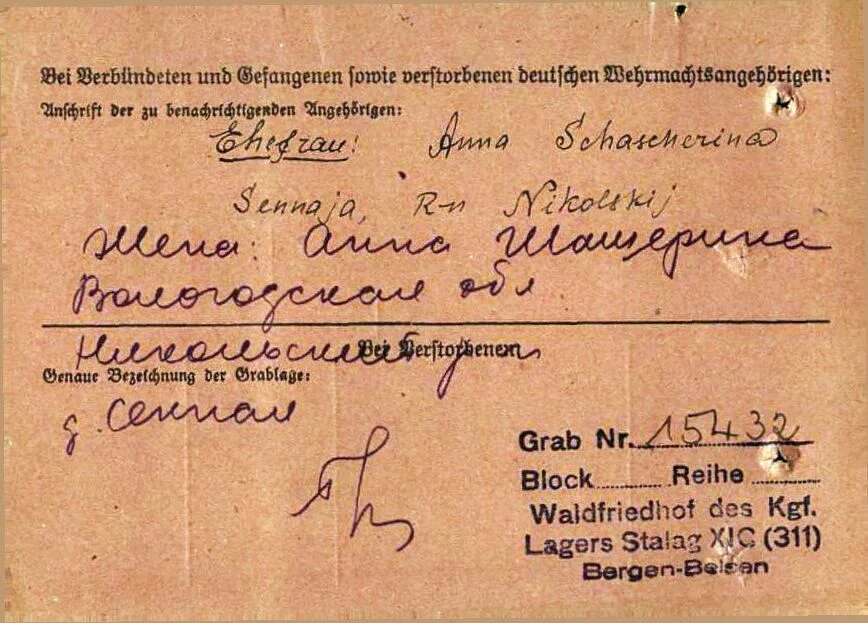 Bei Verbündeten und Gefangenen sowie verstorbenen deutschen Wehrmachtsangehörigen:
Anschrift der zu benachrichtigenden Angehörigen:
Ehefrau: Anna Schascherina
Sennaja, R-n Nikolskij
Жена: Анна Шащерина
Вологодская обл
Никольский р-н
Bei Verstorbenem
Genaue Bezeichnung der Grablage:
д. Сенная
Grab Nr. 15432
Block Reihe
Waldfriedhof des Kgf.
Lagers Stalag XIC (311)
Bergen-Belsen